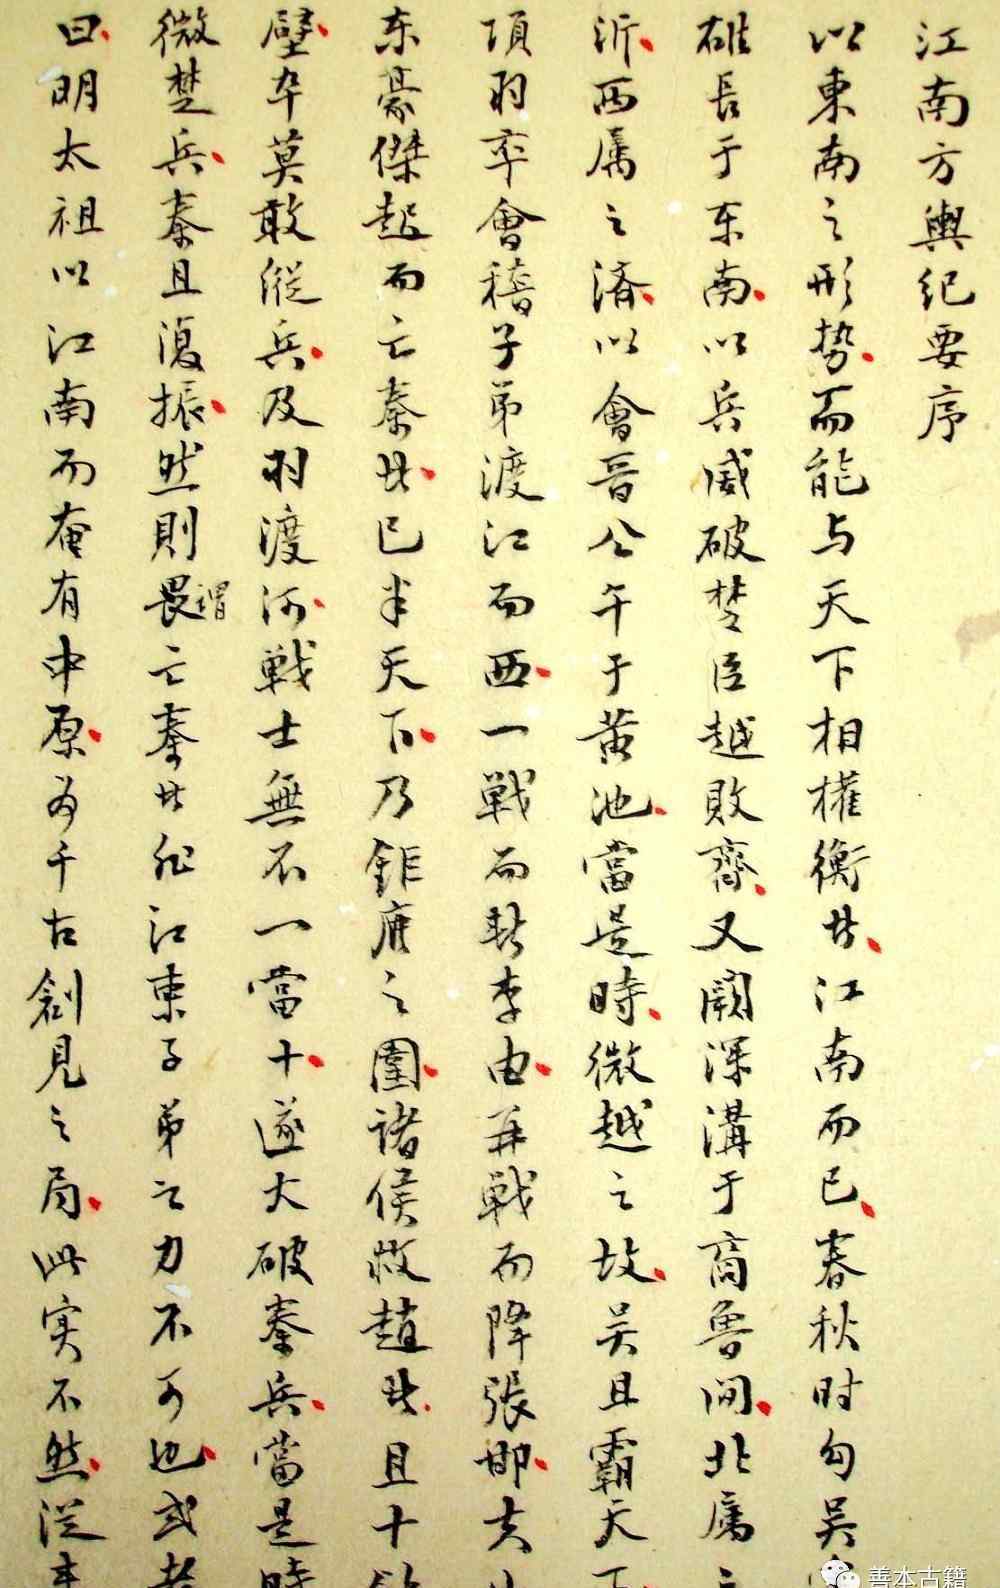 江南方輿纪要序
以東南之形势而能与天下相權衡者江南而已春秋时勾吴
雄長于东南以兵威破楚臣越敗齊又闕深溝于商魯间北属之
沂西属之济以會晋公午于黄池當是時微越之故吴且霸天下
項羽率會稽子弟渡江而西一戰而斬李由再戰而降張邯夫
东豪傑起而亡秦者已半天下乃鉅鹿之圍诸侯救趙者且十餘
壁卒莫敢縱兵及羽渡河戰士無不一當十遂大破秦兵當是時
微楚兵秦且復振然則畏謂亡秦者非江東子弟之力不可也或者
曰明太祖以江南而奄有中原为千古創見之局此实不然從来
善本古籍